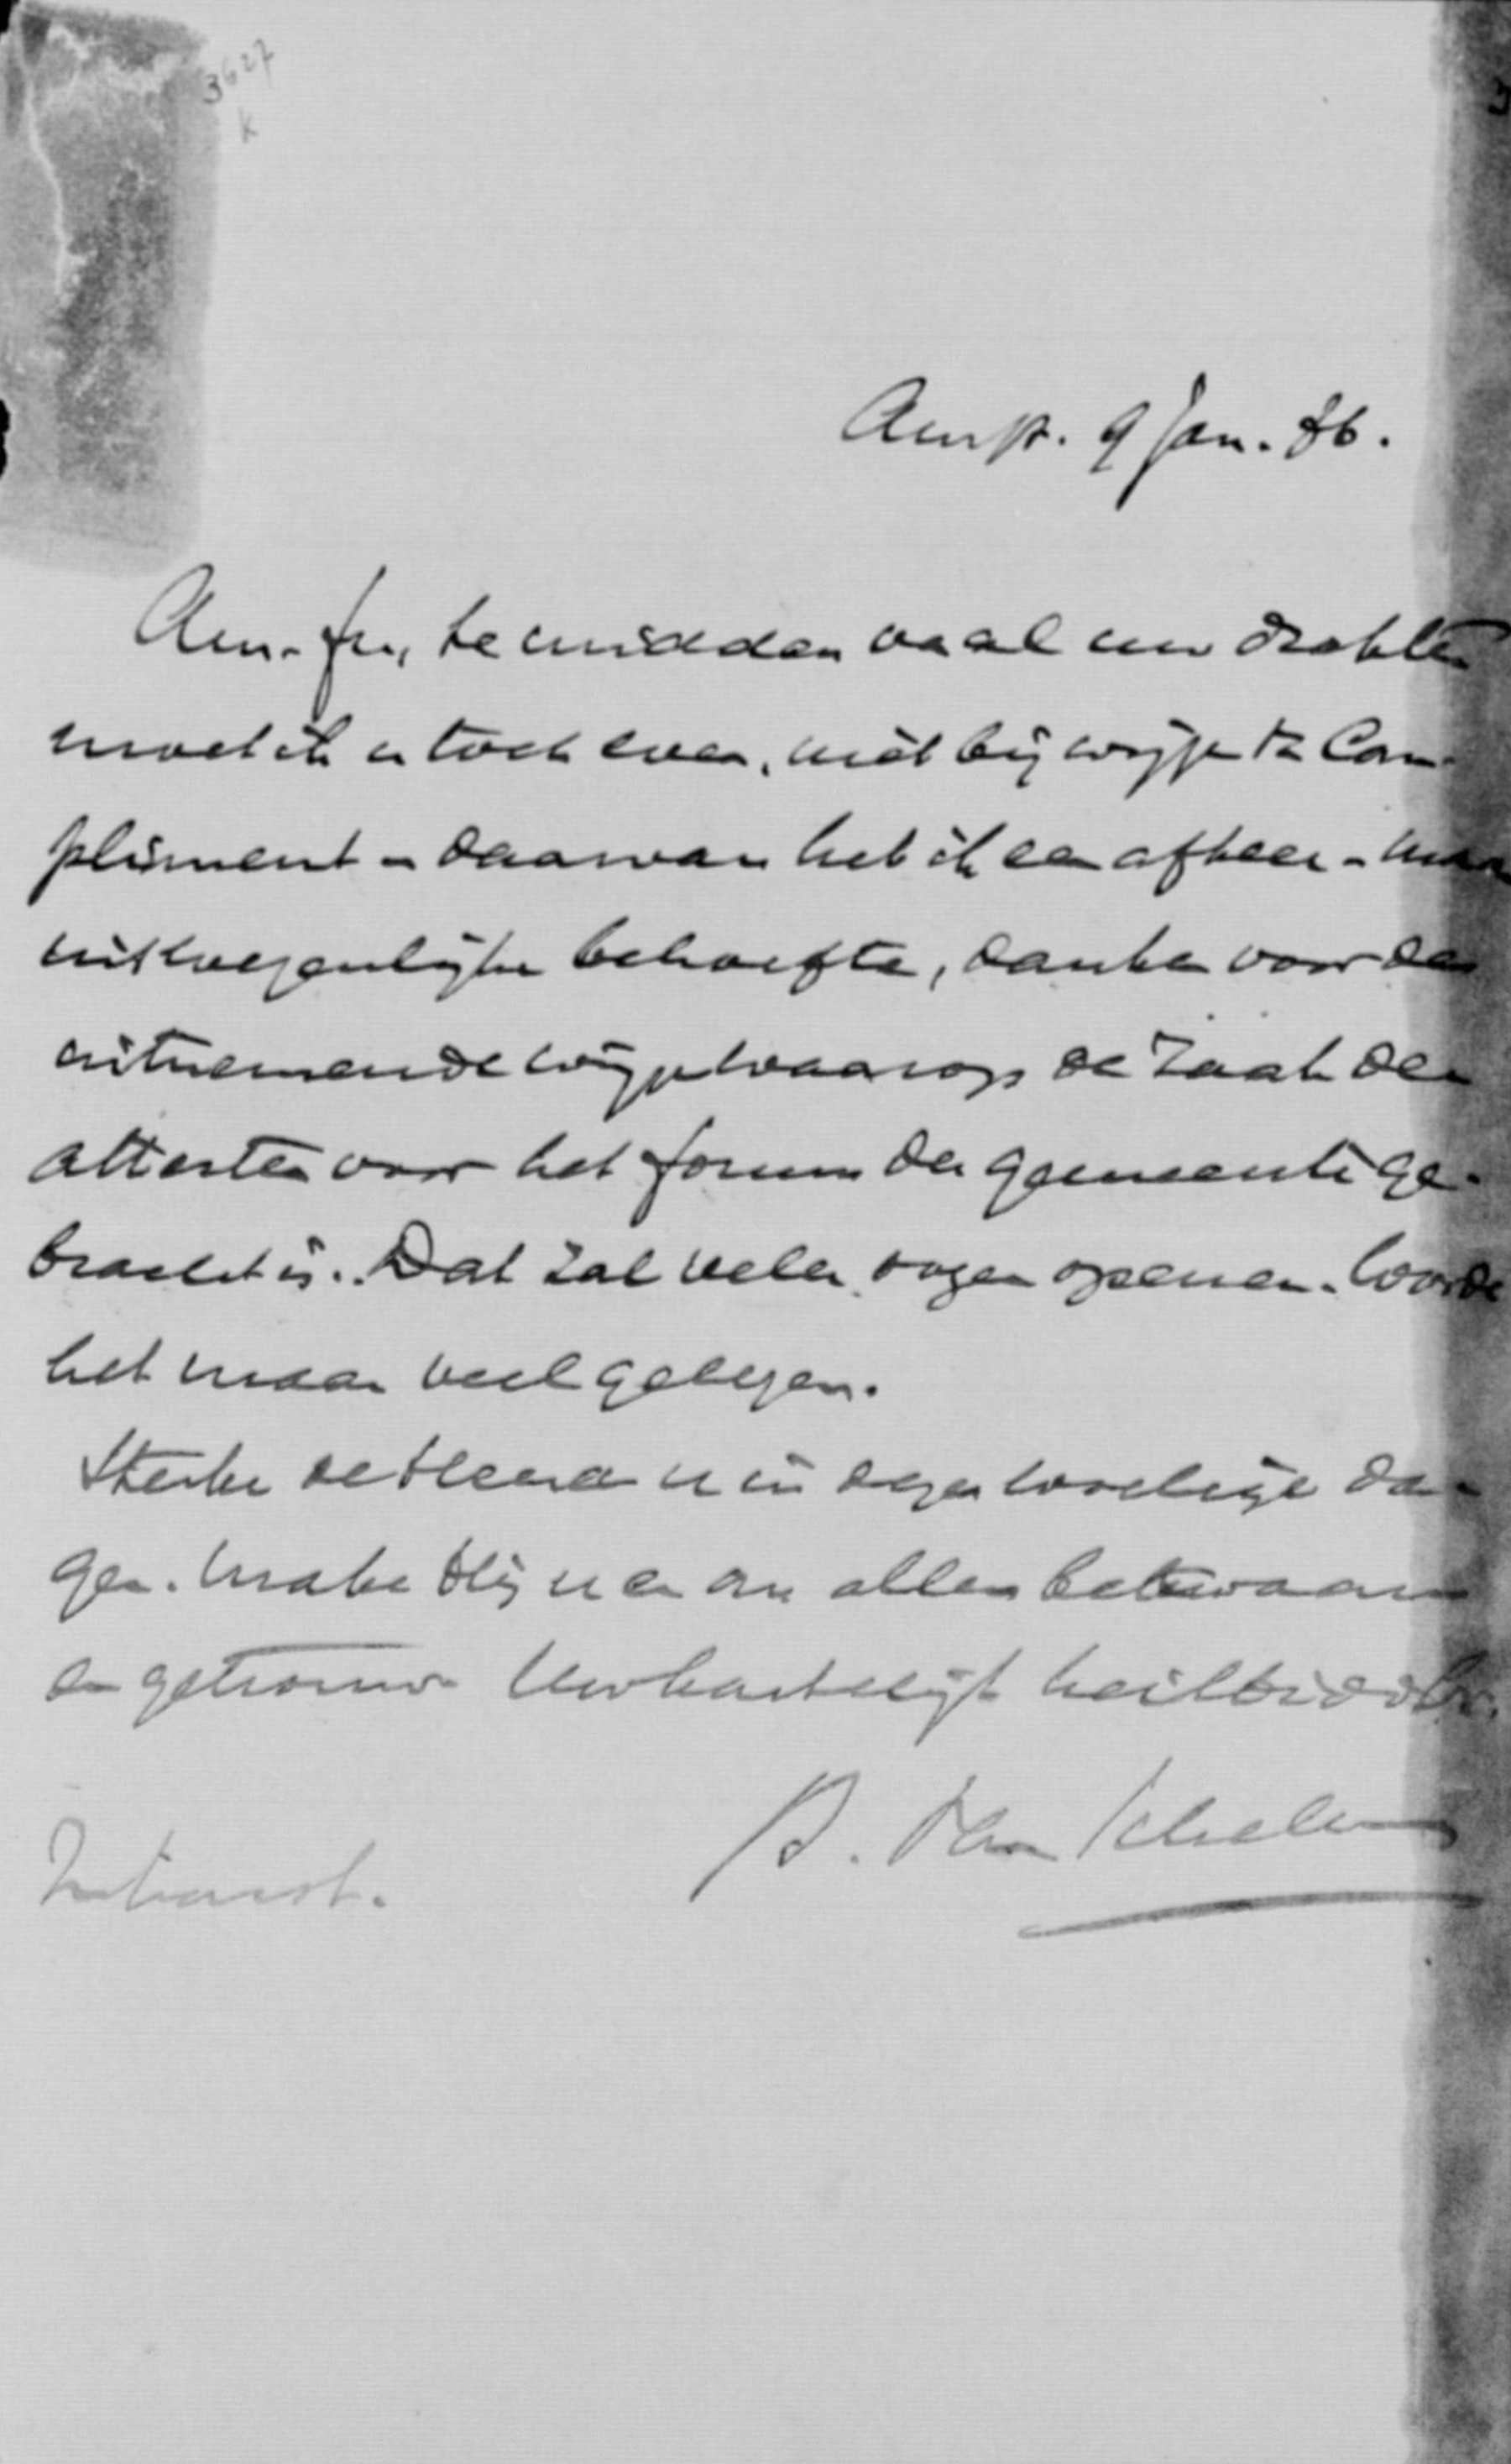 3627
k
Amst. 9 Jan. 86.
Am. fr., te midden van al uw drukten
moet ik u toch even, niet bij wijze te Com-
pliment – daarvan heb ik een afkeer – maar
uit wezenlijke behoefte, danken voor de
uitnemende wijze waarop de zaak der
attesten voor het forum der gemeente ge-
bracht is. Dat zal veler oogen openen. Worde
het maar veel gelezen.
Sterke de Heere u in deze woelige da-
gen. Make Hij u en ons allen bekwaam
en getrouw. Uw hartelijk heilbidd. br.
B. van Schelven